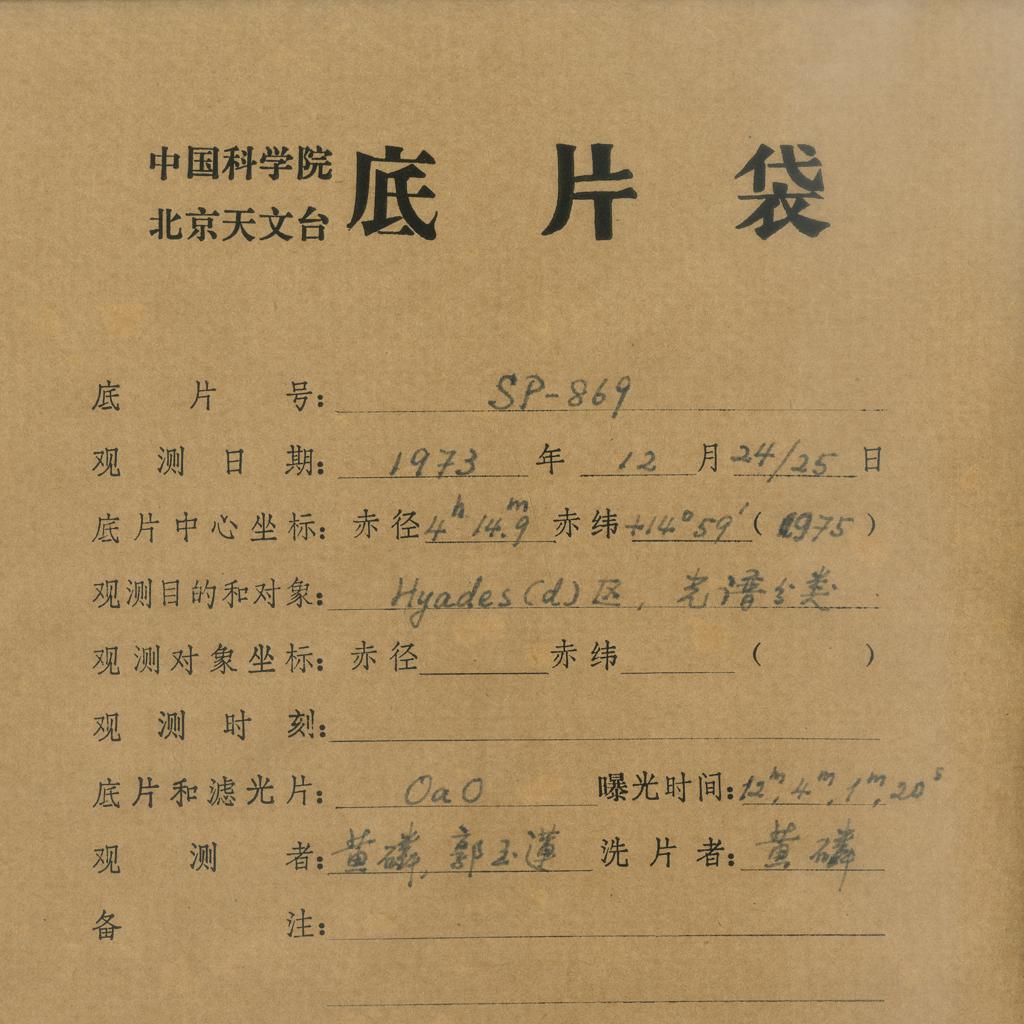 中国科学院
北京天文台
底片袋
底片号: SP-869
观测日期: 1973 年 12 月 24/25 日
底片中心坐标: 赤径 4h 14m.9 赤纬 +14°59′ (1975)
观测目的和对象: Hyades(d)区, 光谱分类
观测对象坐标: 赤径 赤纬 ( )
观测时刻:
底片和滤光片: OaO 曝光时间: 12m, 4m, 1m, 20s
观测者: 黄磷, 郭玉莲 洗片者: 黄磷
备注: